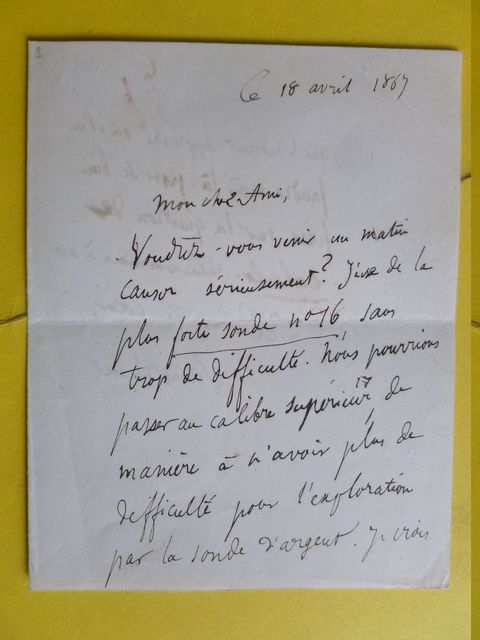 Ce 18 avril 1867
Mon cher Ami,
Voudrez-vous venir un matin
causer sérieusement? J'use de la
plus forte sonde no 16 sans
trop de difficulté. Nous pourrions
passer au calibre supérieur 17 de
manière à n'avoir plus de
difficulté pour l'exploration
par la sonde d'argent. Je crois